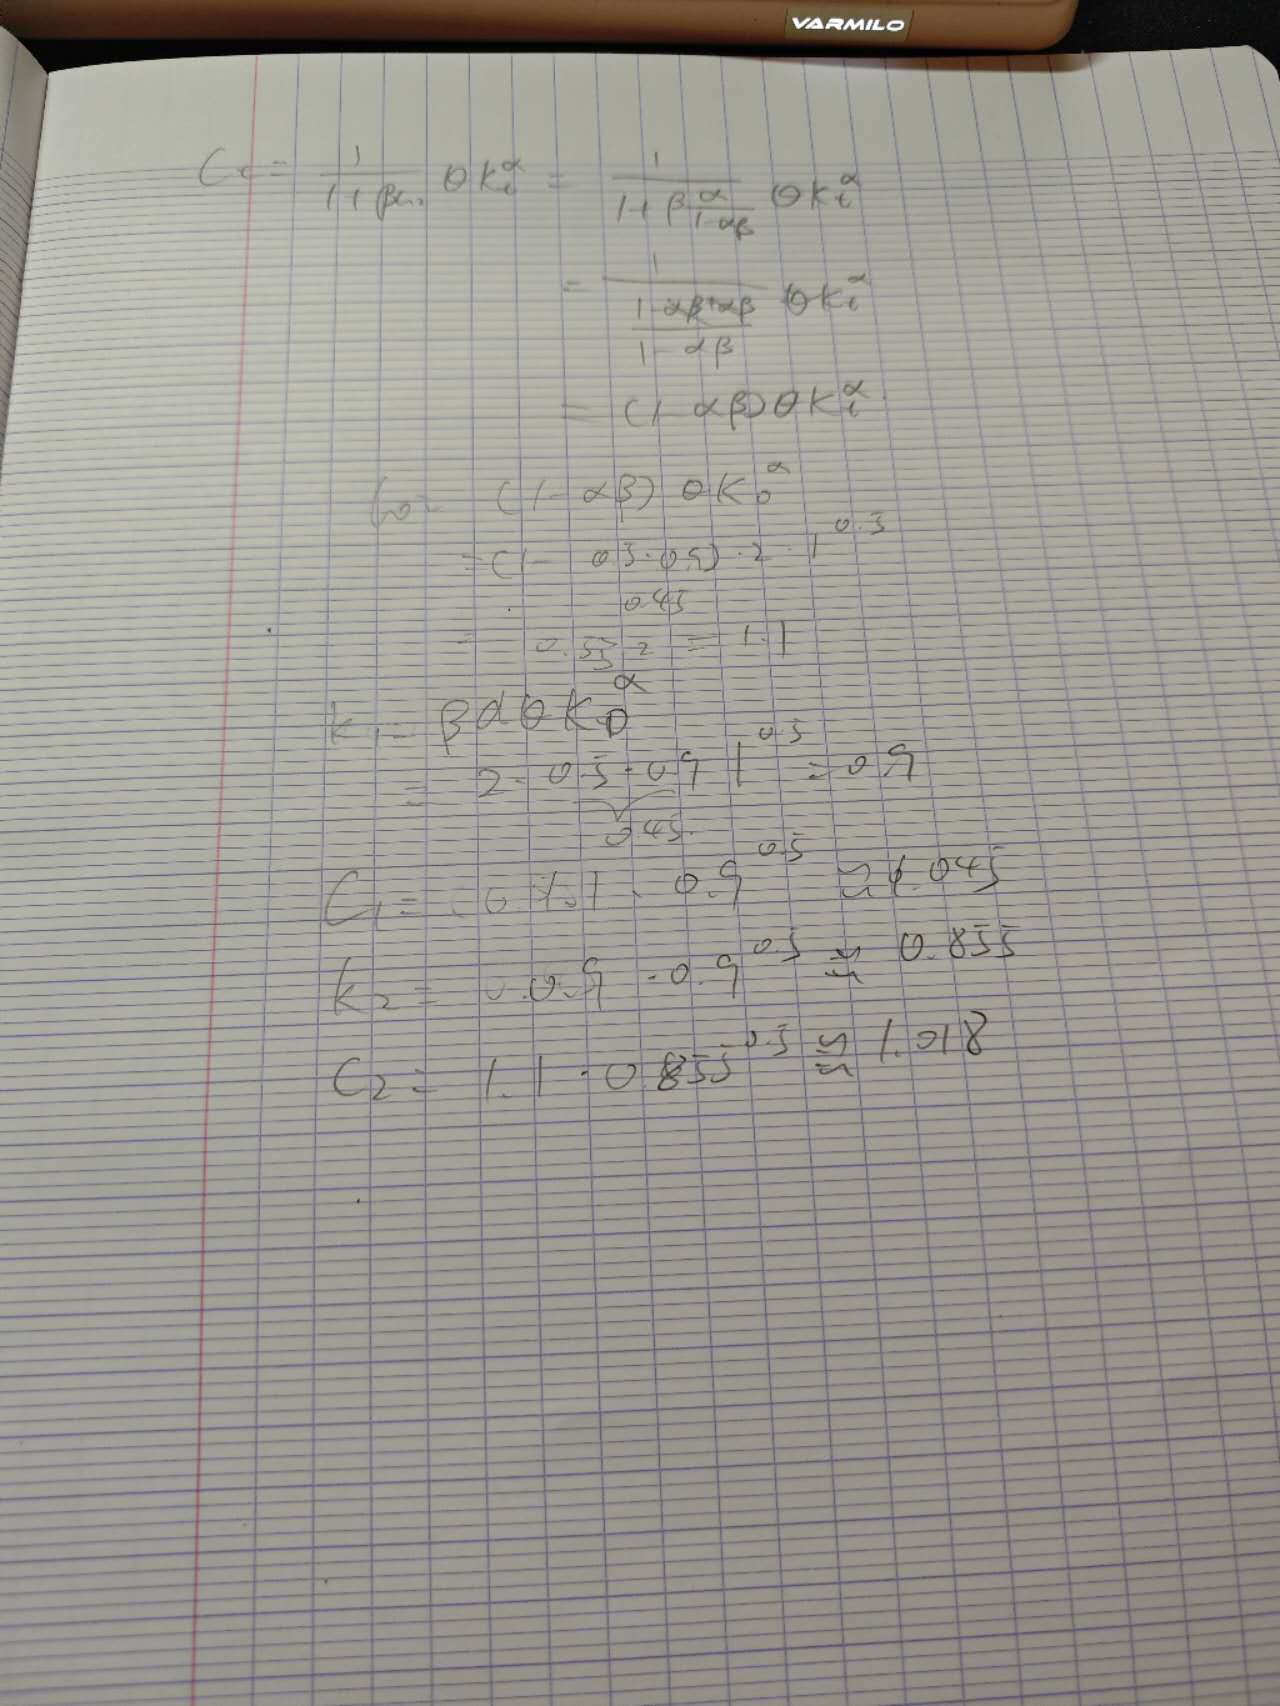 VARMILO
C_i = 1/(1+βa₁) θ k_i^α = 1/(1+β α/(1-αβ)) θ k_i^α
= 1/((1-αβ+αβ)/(1-αβ)) θ k_i^α
= (1-αβ) θ k_i^α
C₀ = (1-αβ) θ k₀^α
= (1- 0.5·0.9)·2·1^0.5
0.45
= 0.55 2 = 1.1
k₁ = β α θ k₀^α
= 2·0.5·0.9 1^0.5 = 0.9
0.45
C₁ = 1.1 · 0.9^0.5 ≈ 1.045
k₂ = 0.9 · 0.9^0.5 ≈ 0.855
C₂ = 1.1 · 0.855^0.5 ≈ 1.018